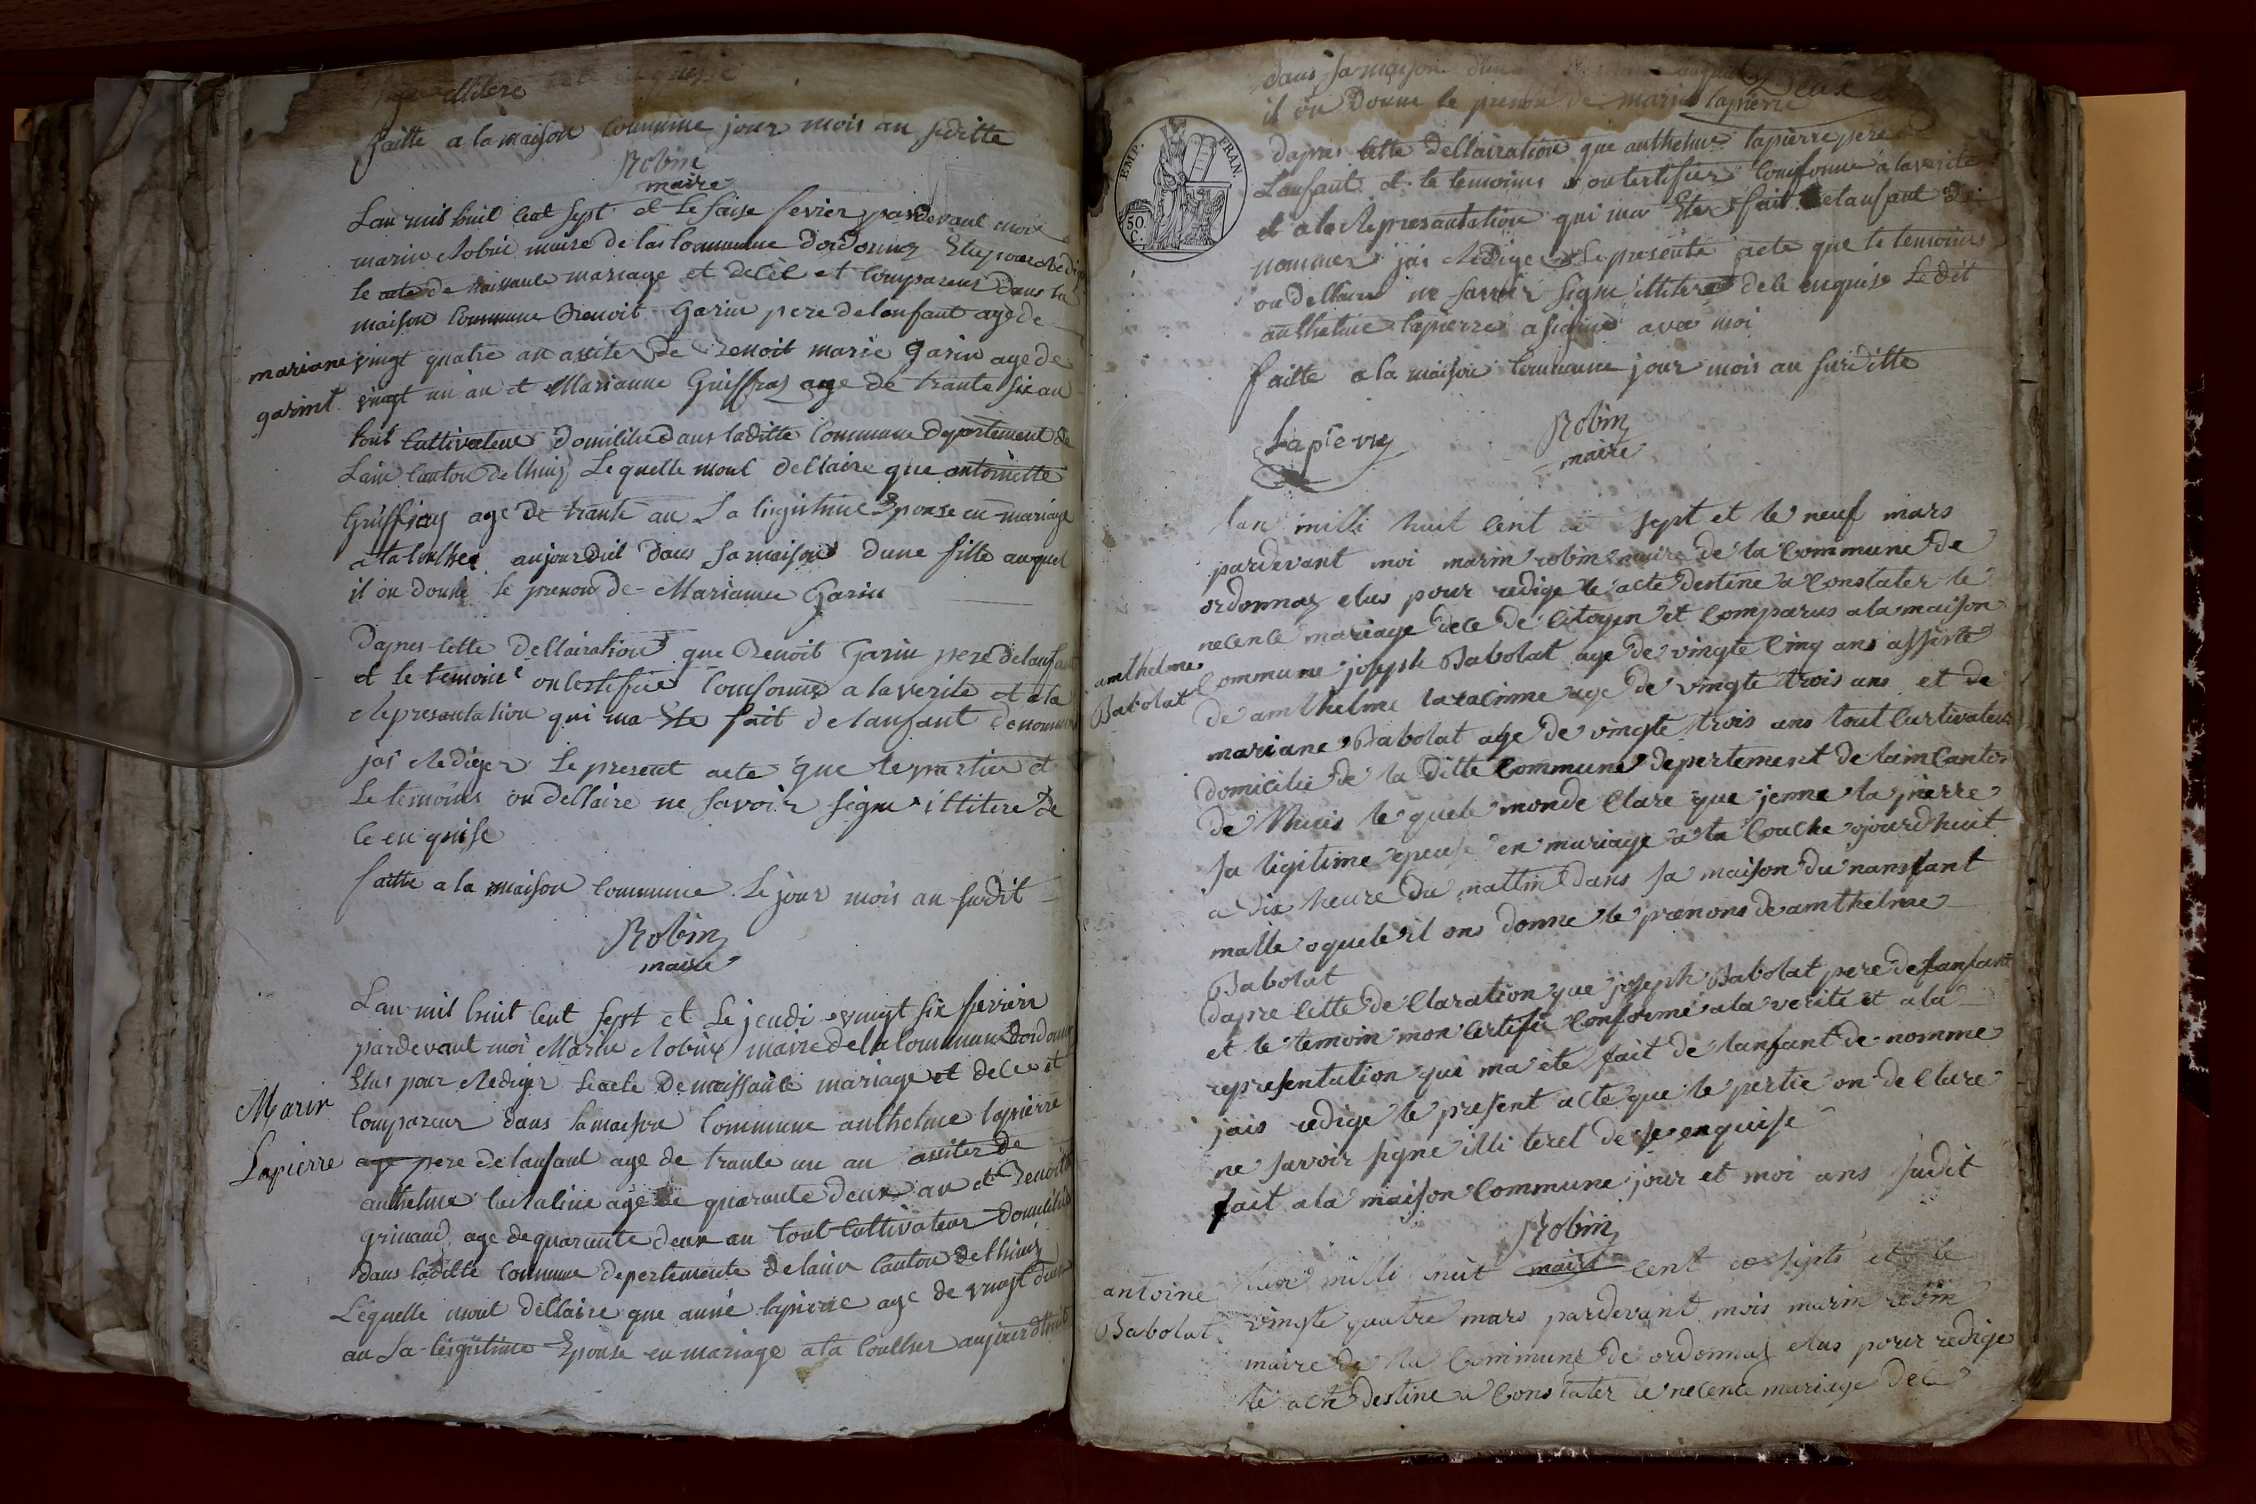 illitere
faitte a la maison commune jour mois an suditte
Robin
maire
Lan mil huit cent sept et le saise fevier pardevant moi
marin Robin maire de las commune dordonnaz Elu pour Redige
le acte de naissance mariage et decet et compareus dans la
maison commune Benoit Garin pere de lenfant age de
mariane
garint
vingt quatre an assiter de Benoit marie Garin age de
vingt un an et Marianne Guiffray age de trante six an
tout cultivateur domicilie dans laditte commune departement de
Lain canton de lhuis Lequelle mont dellaire que antoinette
Guiffray age de trante an Sa ligistime Eponse en mariage
a la couchee aujourduit dans sa maison dune fille auquel
il on donné le prenon de Marianne Garin
Dapres cette dellairation que Benoit Garin pere delanfant
et le temoint on certifiée conforme a la verite et a la
Representation qui ma Ete fait de lanfant denomme
jai Rediger Le present acte que le partier et
Le temoins on dellaire ne Savoir signe illitere de
ce enquise
faitte a la maison commune Le jour mois an sudit
Robin
maire
Lan mil huit cent sept et Le jeudi vingt six fevrier
pardevant moi Marin Robin maire de la commune dordonnaz
Elus pour Rediger Leacte de naissance mariage et dece et
Marin
Lapierre
compareur dans la maison commune anthelme lapierre
age pere de lanfant age de trante un an assiter de
anthelme age de quarante deux an et Benoit
grinand age de quarante deux an tout cultivateur domicilie
dans laditte commune depertemente de lain canton de lhuis
Lequelle mont dellaire que anne lapierre age de vingt deux
an Sa legistime Eponse en mariage a la coucher aujourdhuit
dans sa maison
il on donne le prenon de marin lapierre
EMP. FRAN.
50 C.
dapres cette dellairation que anthelme lapierre pere
Lanfant et le temoins on certifier conforme a la verite
et a la Representation qui ma Ete fait de lanfant de
nommer jai Rediger Le presente acte que le temoins
on dellaire ne savoir signe illitere de ce enquise Le dit
anthelme lapierre a signe avec moi
faitte a la maison commune jour mois an surditte
Lapierre
Robin
maire
lan milli huit cent sept et le neuf mars
pardevant moi marin robin maire de la commune de
ordonnaz elus pour redige le acte destine a constater le
necence mariage dece de citoyen et comparus a la maison
amthelme
Babolat
commune joseph Babolat age de vingte cinq ans assiste
de amthelme age de vingte trois ans et de
mariane Babolat age de vingte trois ans tout curtivateur
domicilie de la ditte commune depertement de lain canton
de lhuis le quele monde clare que jenne la pierre
sa ligitime epeuse en mariage a la couche ojourdhuit
a dix heure du mattin dans sa maison du nansfant
malle oquele il ons donne le prenons de amthelme
Babolat
dapre cette de claration que joseph Babolat pere de lanfant
et le temoin mon certifie conforme a la verite et a la
representation qui ma ete fait de lanfant de nomme
jais redige le present acte que le pertie on de clare
ne savoir signe illi teret de se enquise
fait a la maison commune jour et moi ans sudit
Robin
maire
antoine
Babolat
lan milli huit cent septs et le
vingte quatre mars pardevant mois marin robin
maire de la commune de ordonnaz elus pour redige
le acte destine a constater le necence mariage dece